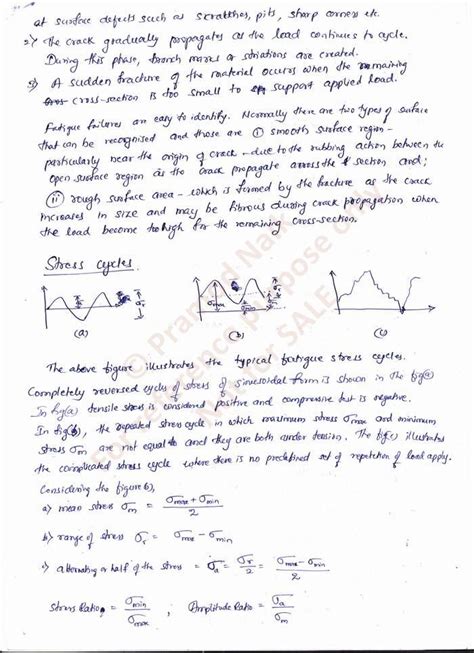 at surface defects such as scratches, pits, sharp corners etc.
2) The crack gradually propagates as the load continues to cycle.
During this phase, beach marks or striations are created.
3) A sudden fracture of the material occurs when the remaining
cross-section is too small to support applied load.
Fatigue failures are easy to identify. Normally there are two types of surface
that can be recognised and those are ① smooth surface region -
particularly near the origin of crack - due to the rubbing action between the
open surface region as the crack propagate across the section and;
ⓘⓘ rough surface area - which is formed by the fracture as the crack
increases in size and may be fibrous during crack propagation when
the load become too high for the remaining cross-section.
Stress cycles
(a) (b) (c)
The above figure illustrates the typical fatigue stress cycles.
Completely reversed cycle of stress of sinusoidal form is shown in the fig(a)
In fig(a) tensile stress is considered positive and compressive is negative.
In fig(b), the repeated stress cycle in which maximum stress σmax and minimum
stress σm are not equal to and they are both under tension. The fig(c) illustrates
the complicated stress cycle where there is no predefined set of repetition of load apply.
Considering the figure(b),
a) mean stress σm = (σmax + σmin)/2
b) range of stress σr = σmax - σmin
c) alternating or half of the stress = σa = σr/2 = (σmax - σmin)/2
Stress Ratio, = σmin/σmax , Amplitude Ratio = σa/σm
© Pramod Naik
For reference purpose only
Not for SALE